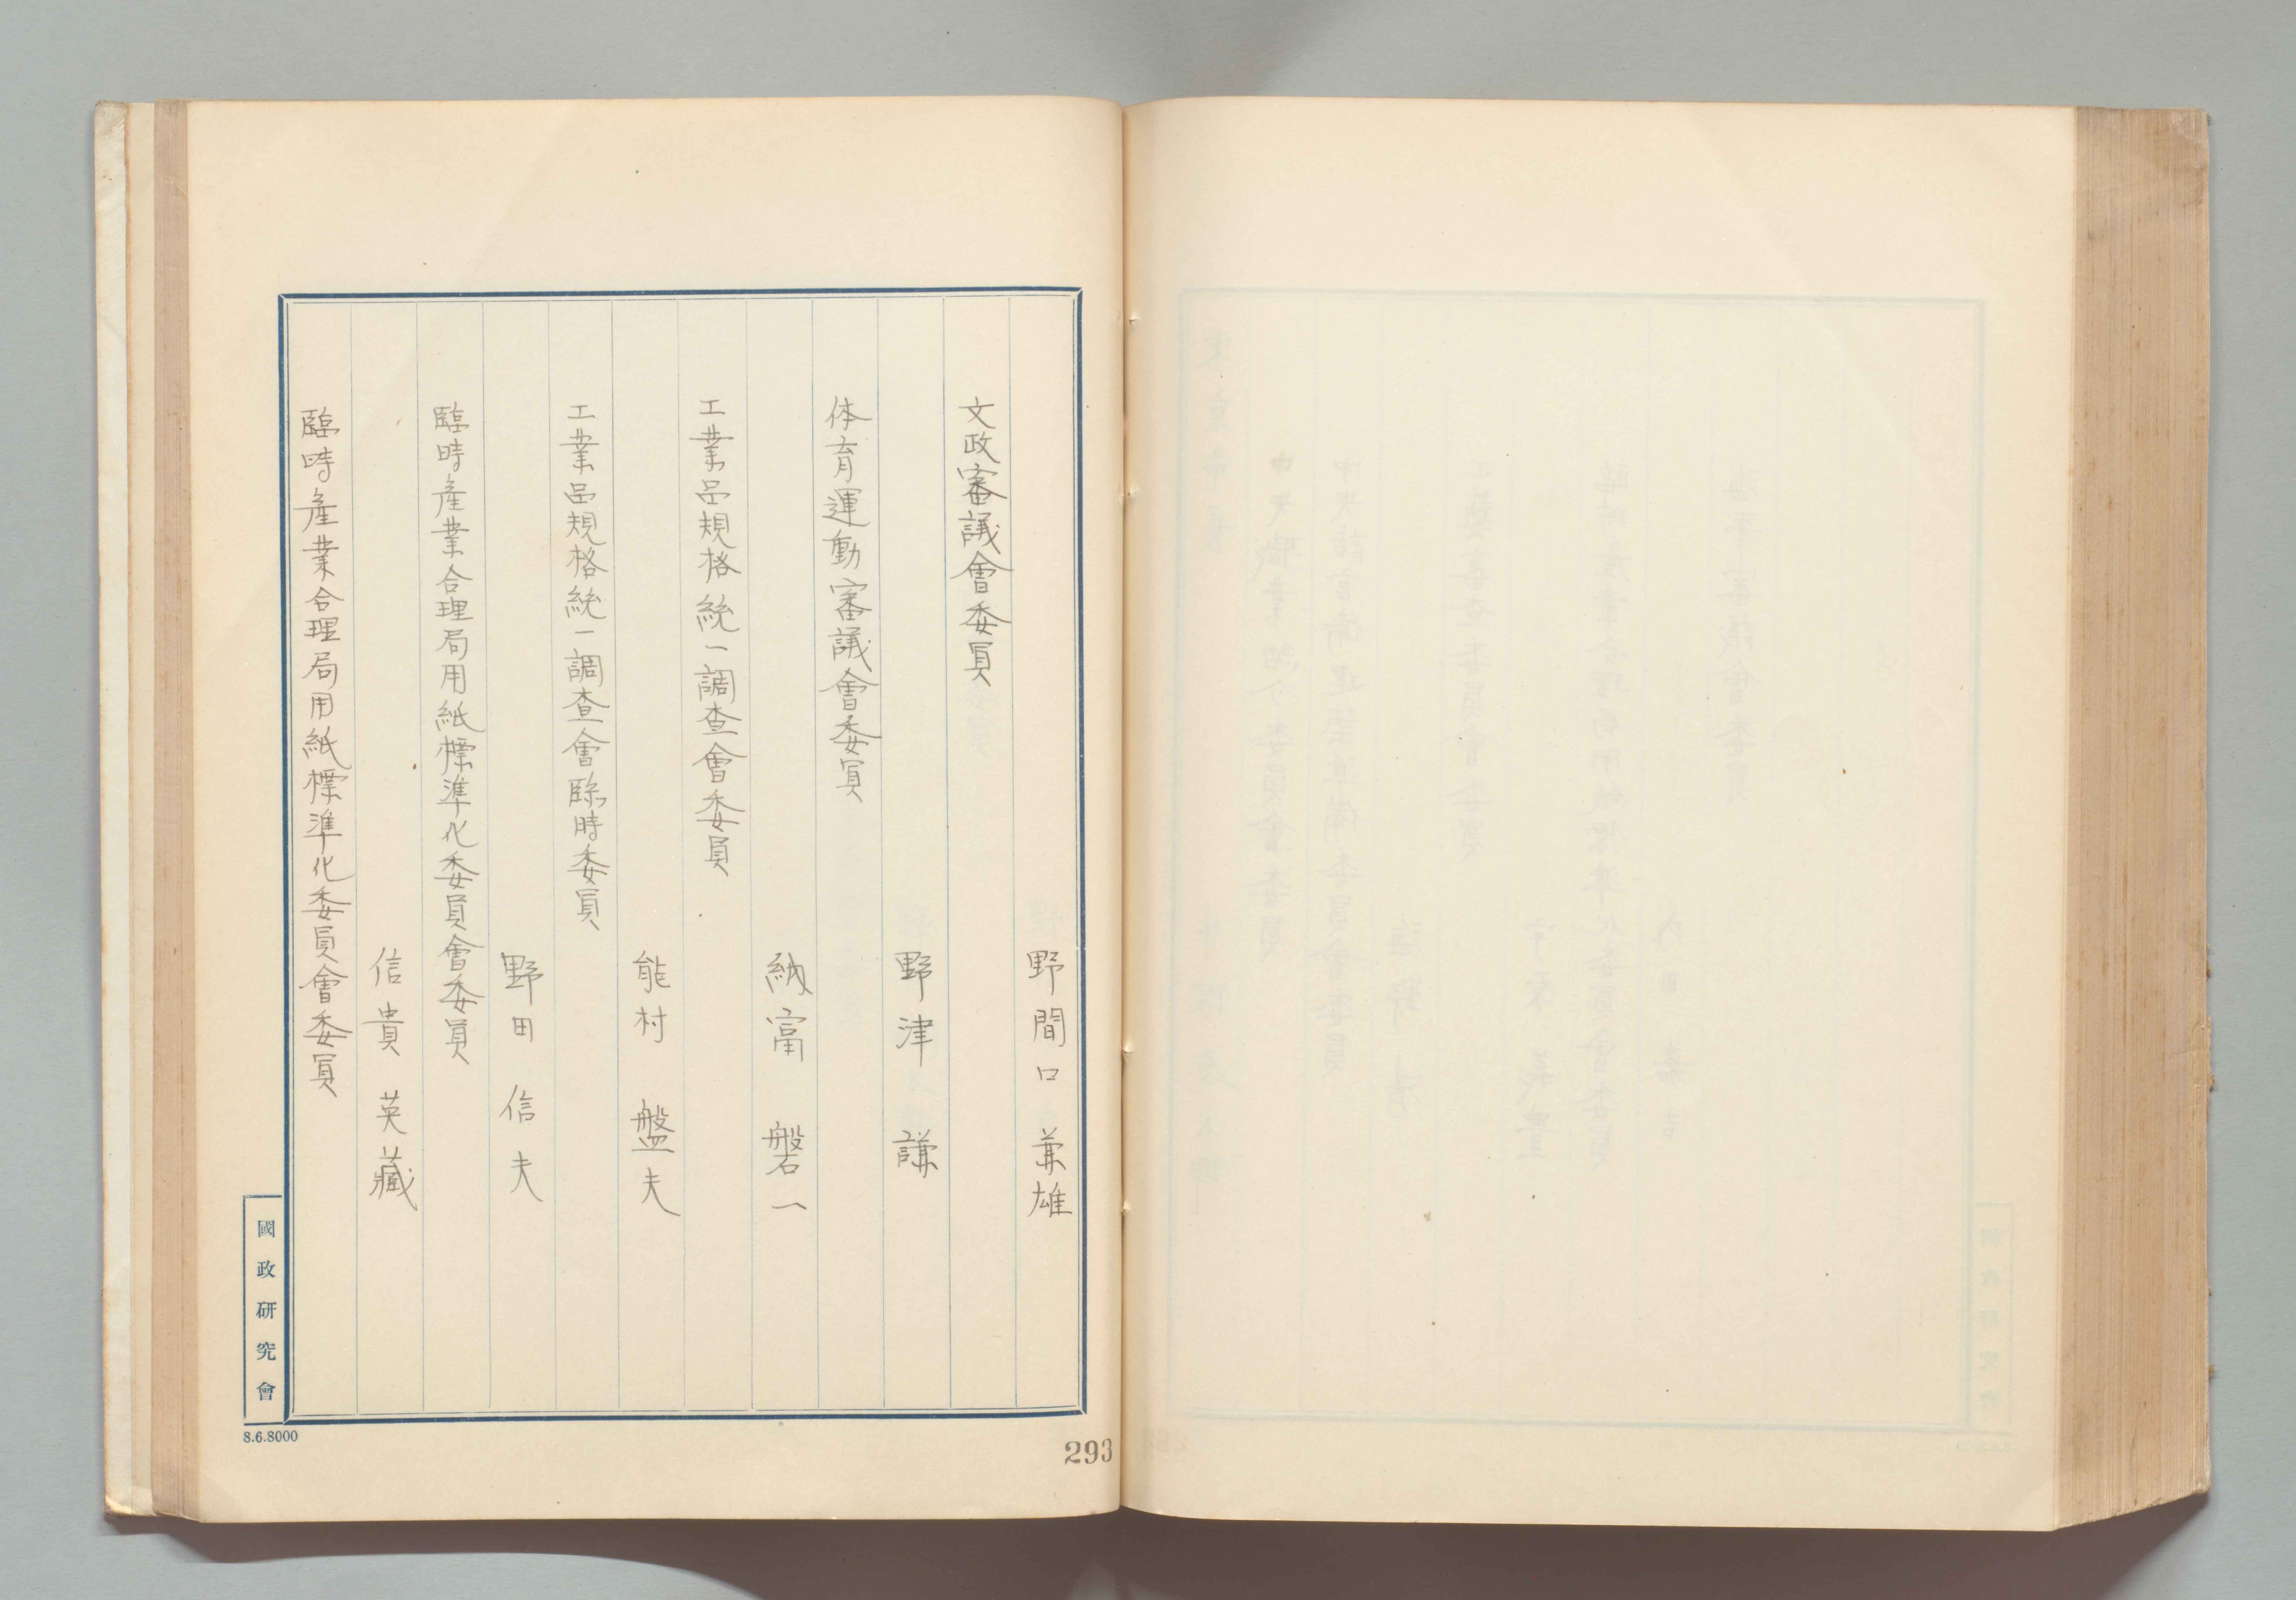 野間口兼雄
文政審議會委員
野津謙
体育運動審議會委員
納富磐一
工業品規格統一調査會委員
能村盤夫
工業品規格統一調査會臨時委員
野田信夫
臨時產業合理局用紙標準化委員會委員
信貴英藏
臨時產業合理局用紙標準化委員會委員
國政研究會
8.6.8000
293